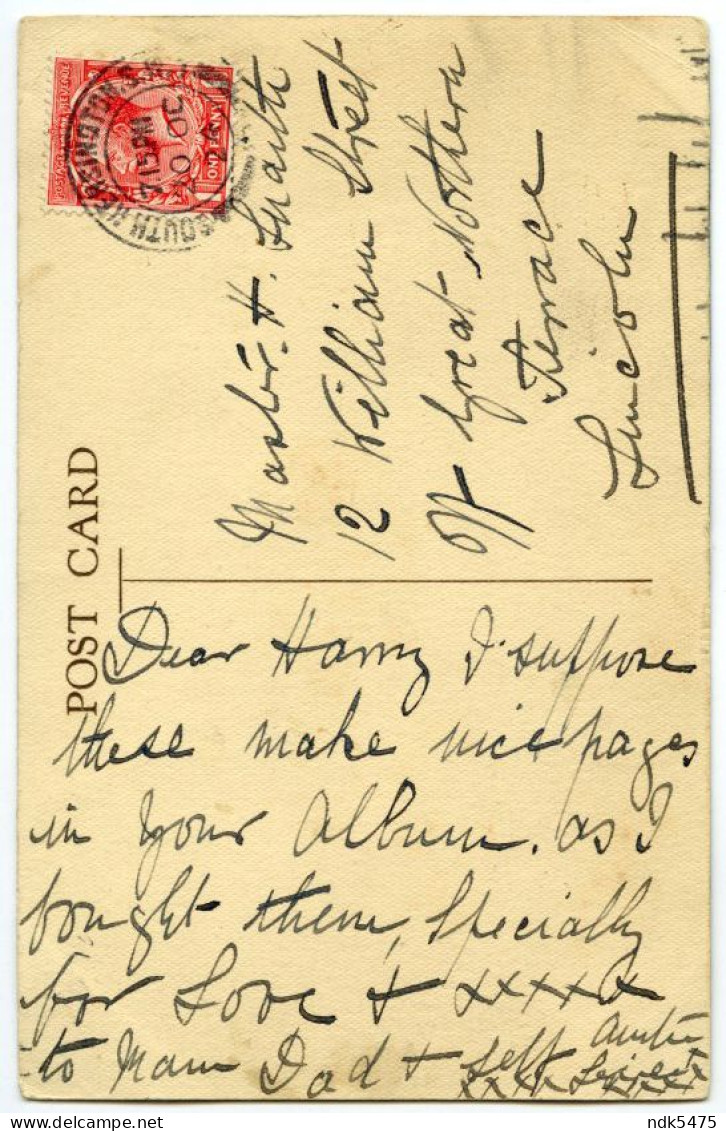 POST CARD
SOUTH KENSINGTON. S.W.
7.15 PM
POSTAGE REVENUE
ONE PENNY
Master. H. Smith
12 William Street
off Great Northern
Terrace
Lincoln
Dear Harry I suppose
these make nice pages
in your Album. as I
bought them, specially
for Love + xxxxx
to Mam Dad + self
xxxx xxxx
delcampe.net
ndk5475